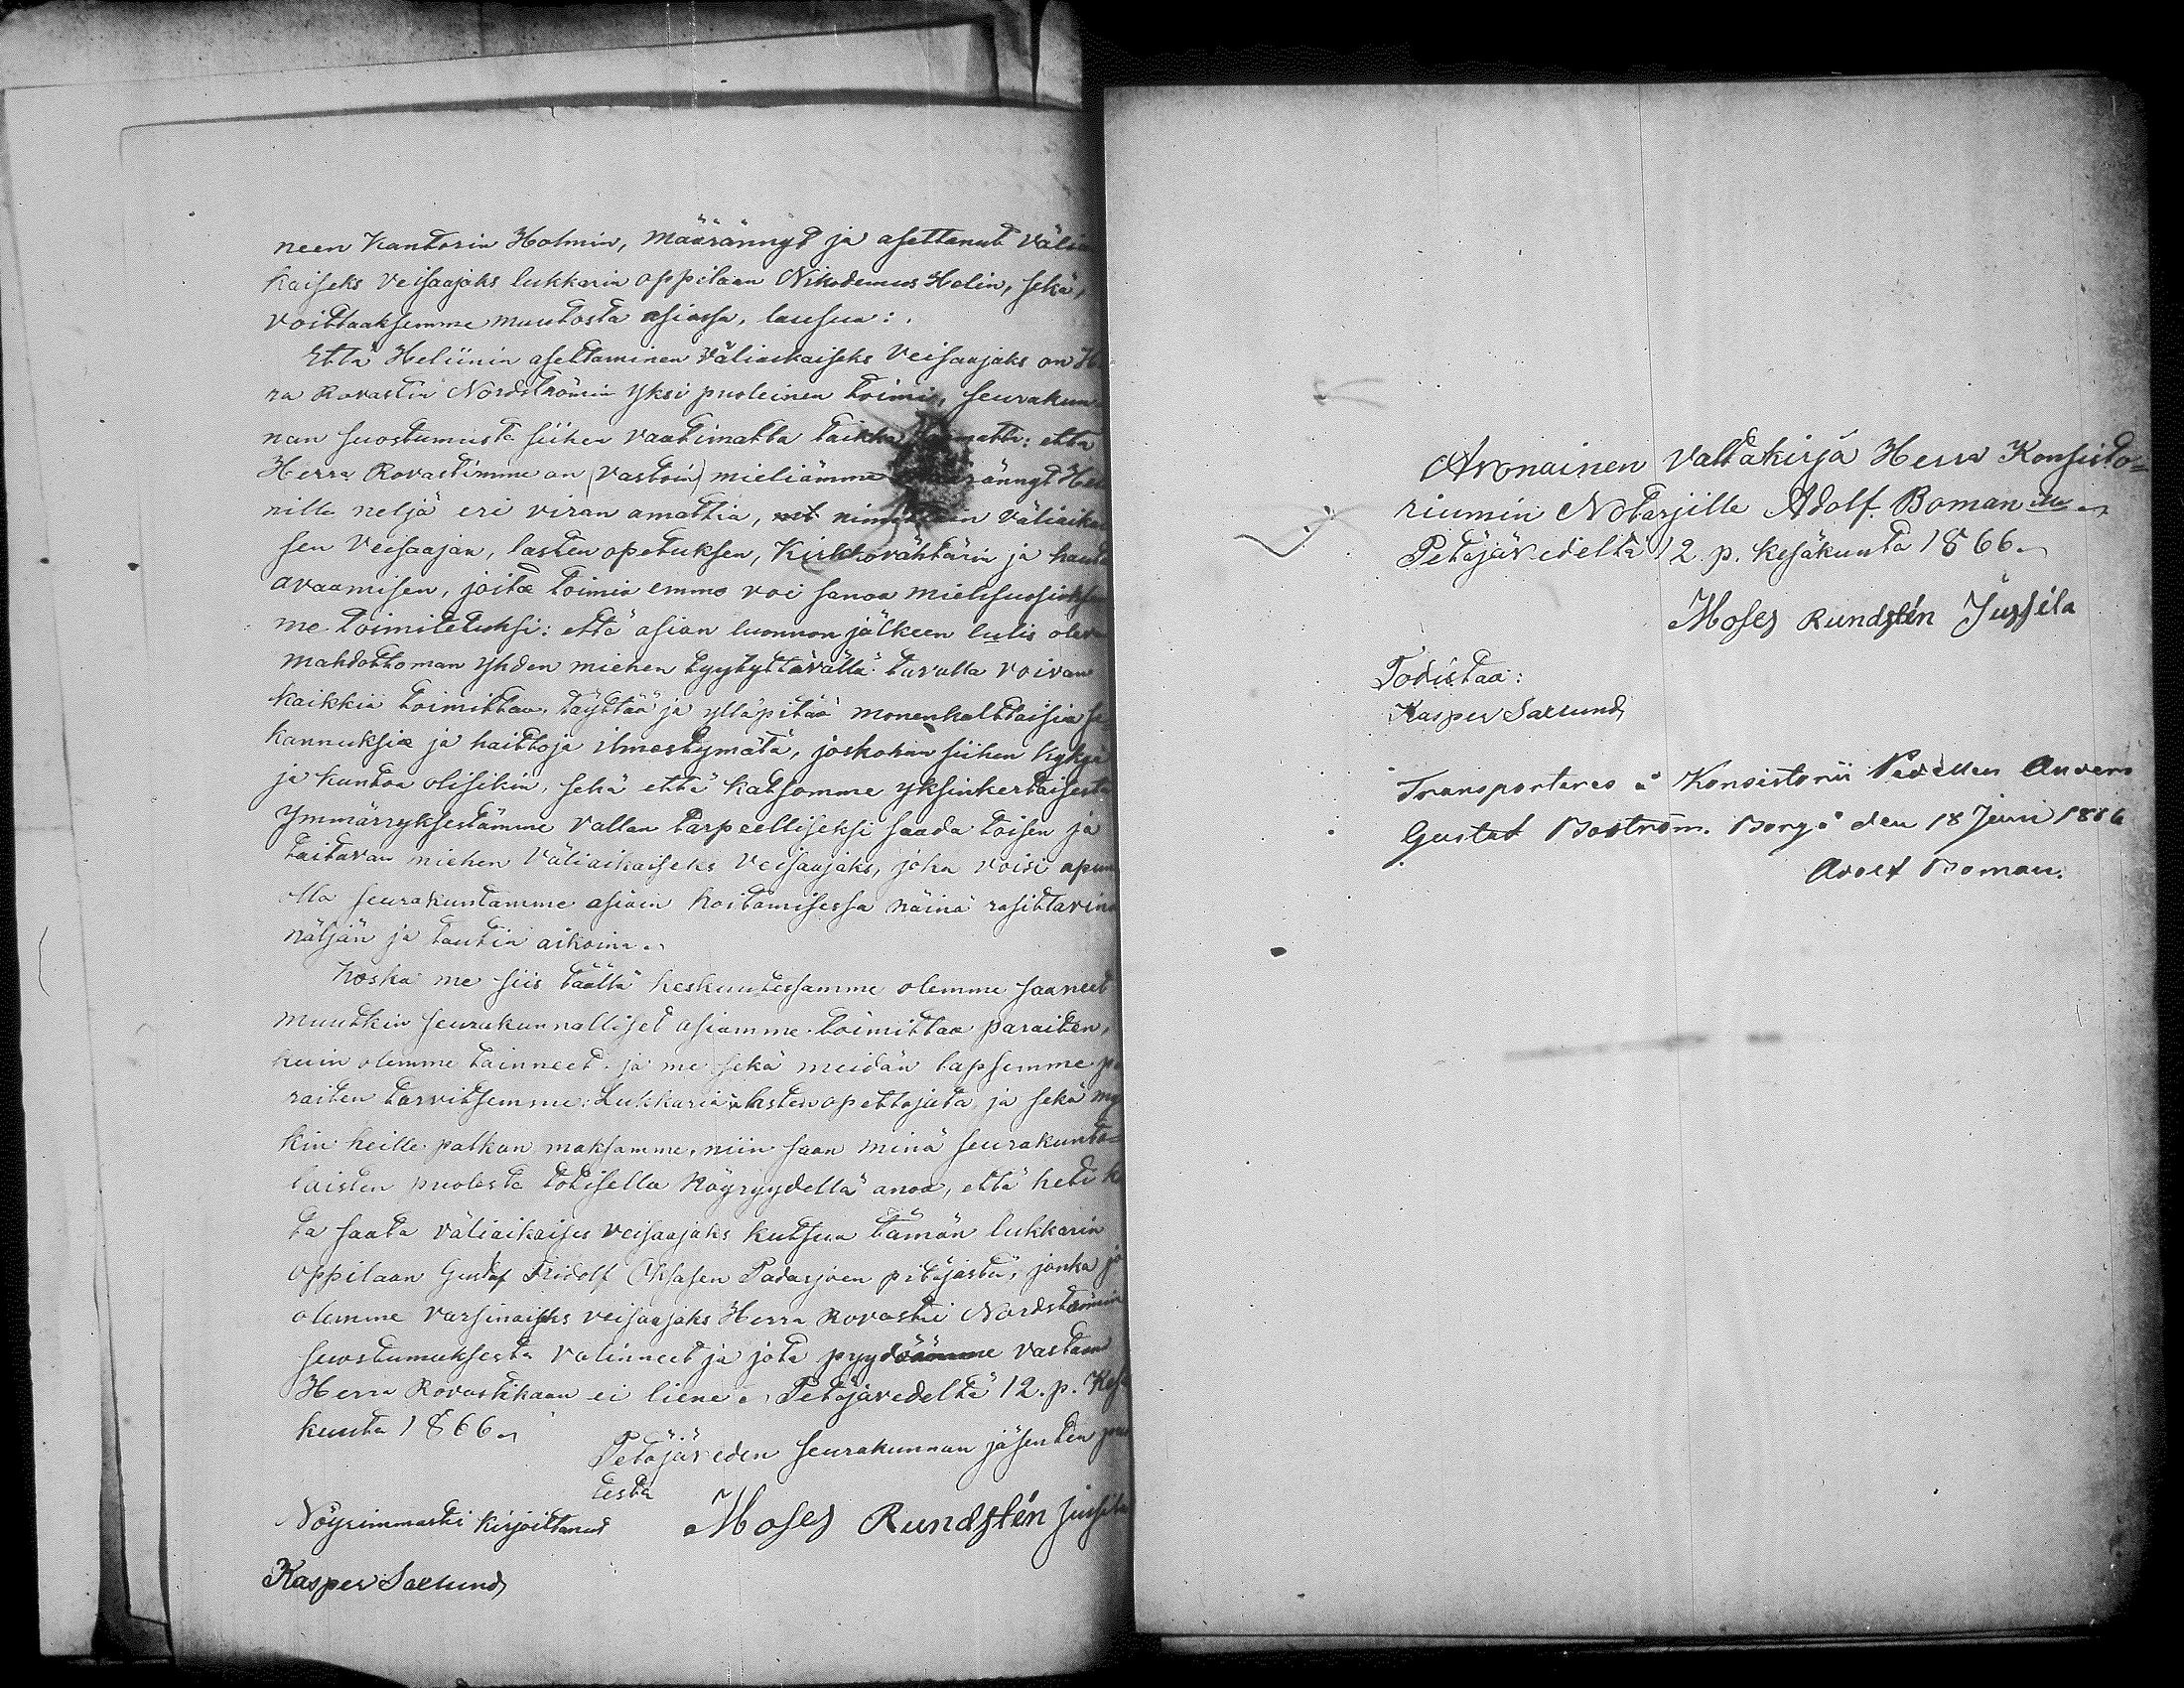 neen Kantorin Holmin, määrännyt ja asettanut Välia
kaiseks veisaajaks lukkarin oppilaan Nikodemus Helin, sekä,
voittaaksemme muutosta asiassa, lausua:
Että Heliinin asettaminen väliaikaiseks Veisaajaks on He
ra Rovastin Nordströmin yksi puoleinen toimi, seurakun
nan suostumusta siihen vaatimatta taikka : että
Herra Rovastimme on (vastoin) mieliämme määrännyt Hel
nille neljä eri viran amattia, nimittäin väliaikai
sen Veisaajan, lasten opetuksen, Kirktovähtärin ja hauta
avaamisen, joita toimia emme voi sanoa mielisuosioksem
me toimitetuksi: että asian luonnon jälkeen tulis olevan
mahdottoman yhden miehen tyytyttävällä tavalla voivan
kaikkia toimittaa, täyttää ja ylläpitää monenkalttaisia se
kannuksia ja haittoja ilmestymätä, joskohan siihen kykyä
ja kuntoa olisikin, sekä että katsomme yksinkertaisesta
Ymmärryksestämme vallan tarpeelliseksi saada toisen ja
taitavan miehen Väliaikaiseks Veisaajaks, joka voisi apuna
olla seurakuntamme asiain hoitamisessa näinä rasittavina
näljän ja tautin aikoina.
Koska me siis täällä keskuutessamme olemme saaneet
muutkin seurakunnalliset asiamme toimittaa paraiten,
kuin olemme tainneet ja me sekä meidän lapsemme pa
raiten tarvitsemme Lukkaria lasten opettajata ja sekä my
kin heille palkan maksamme, niin saan minä seurakunta=
laisten puolesta totisella Nöyryydellä anoa, että heti k
ta saata väliaikaises veisaajaks kutsua tämän lukkarin
oppilaan Gustaf Fridolf Oksasen Padasjoen pitäjästä, jonka jo
olemme varsinaiseks veisaajaks Herra Rovasti Nordströmin
suostumuksesta valinneet ja jota pyydäämme vastaan
Herra Rovastikaan ei liene. Petäjävedeltä 12. p. Kesä
kuuta 1866.
Petäjäveden seurakunnan jäsenten puo
lesta
Nöyrimmästi kirjoittanut Moses Rundstén Jussila
Kasper Saxlund
Avonainen Valtakirja Herra Konsisto=
riumin Notarjille Adolf Boman ille
Petäjävedeltä 12. p. kesäkuuta 1866.
Moses Rundstén Jussila
Todistaa:
Kasper Saxlund
Transporteres å Konsistorii Pedellen Anders
Gustaf Boström. Borgå den 18 Juni 1866
Adolf Boman.